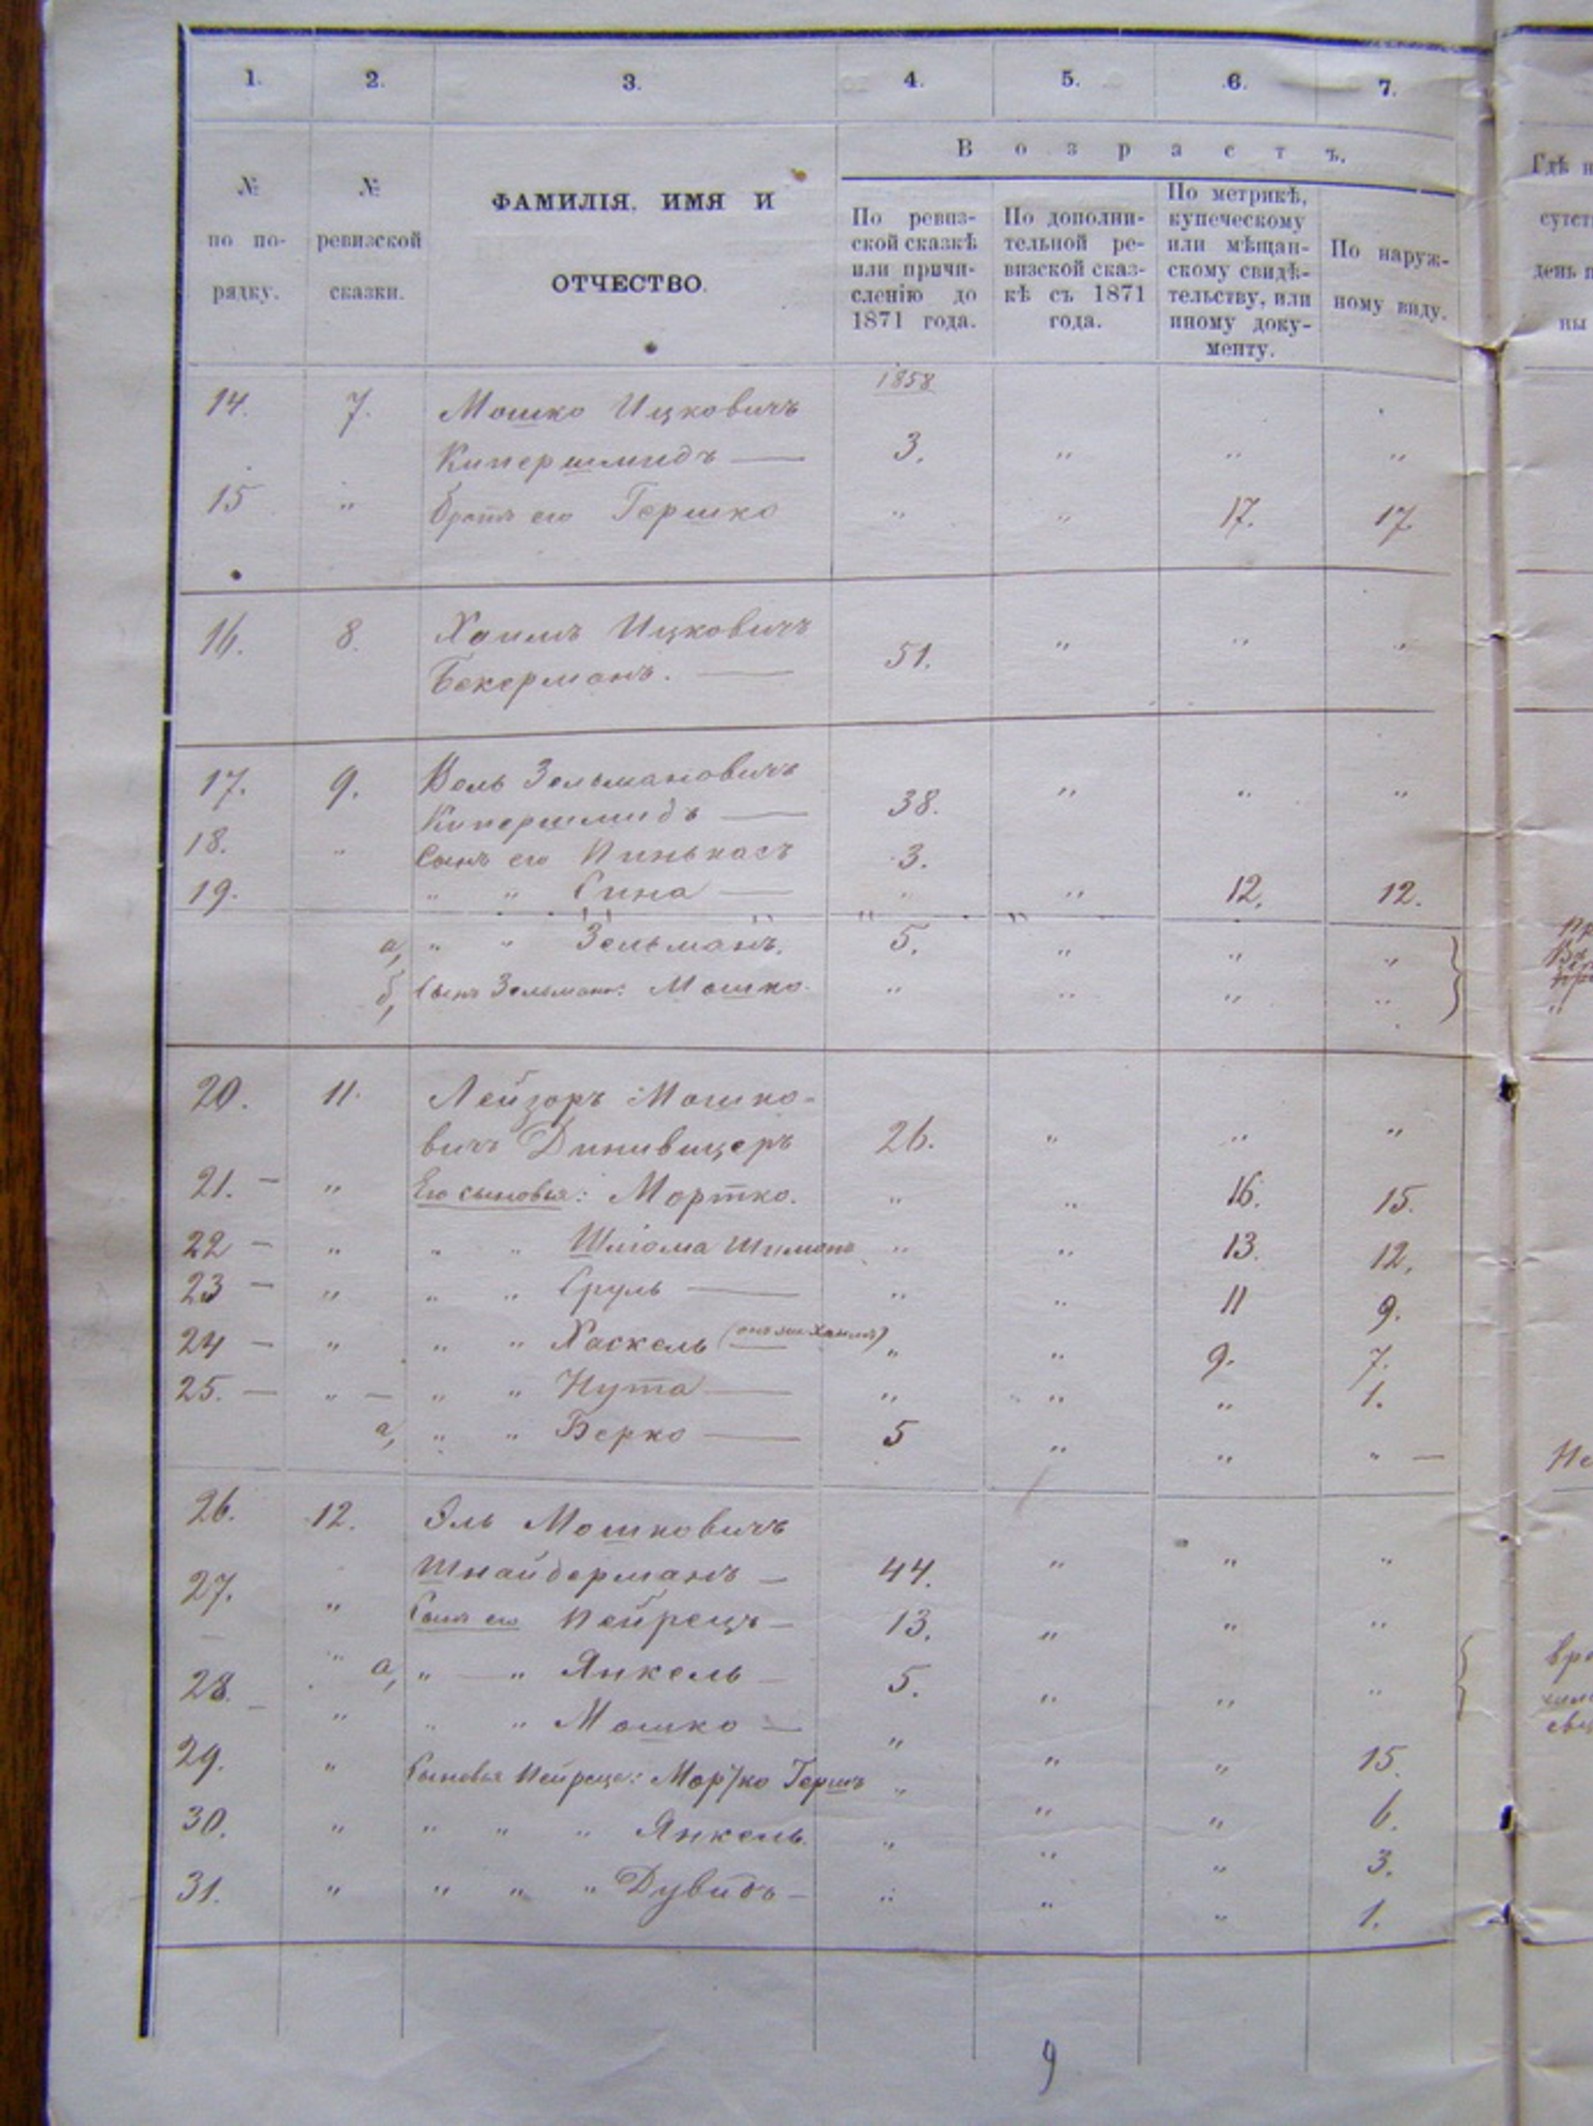 1. 2. 3. 4. 5. 6. 7.
В о з р а с т ъ.
№ по по-рядку.
№ ревизской сказки.
ФАМИЛІЯ, ИМЯ И
ОТЧЕСТВО.
По ревиз-
ской сказкѣ
или причи-
сленію до
1871 года.
По дополни-
тельной ре-
визской сказ-
кѣ съ 1871
года.
По метрикѣ,
купеческому
или мѣщан-
скому свидѣ-
тельству, или
иному доку-
менту.
По наруж-
ному виду.
1858
14. 7. Мошко Ицковичъ
Кипершмидъ — 3. " " "
15 " братъ его Гершко " " 17. 17
16. 8. Хаимъ Ицковичъ
Бекерманъ. — 51. " " "
17. 9. Волъ Зельмановичъ
Кипершмидъ — 38. " " "
18. " Сынъ его Пинькасъ 3.
19. " " Сина — " " 12. 12.
а, " " Зельманъ. 5. " " "
б, Сынъ Зельмана: Мошко. " " " "
20. 11. Лейзоръ Мошко-
вичъ Динивицеръ 26. " " "
21. — " Его сыновья: Мортко. " " 16. 15.
22 — " " " Шліома Шимонъ " " 13. 12.
23 — " " " Сруль — " " 11 9.
24 — " " " Хаскель (онъ же Хаимъ) " " 9. 7.
25. — " — " " Нута — " " " 1.
а, " " Берко — 5 " " " —
26. 12. Эль Мошковичъ
Шнайдерманъ — 44. " " "
27. " Сынъ его Пейрецъ — 13. " " "
" а, " — " Янкель — 5. " " "
28. — " " " Мошко — " " " 15.
29. " Сыновья Пейреца: Мортко Гершъ " " " 6.
30. " " " " Янкель. " " " 3.
31. " " " " Дувидъ — " " " 1.
9
Гдѣ н
сутст
день п
ны